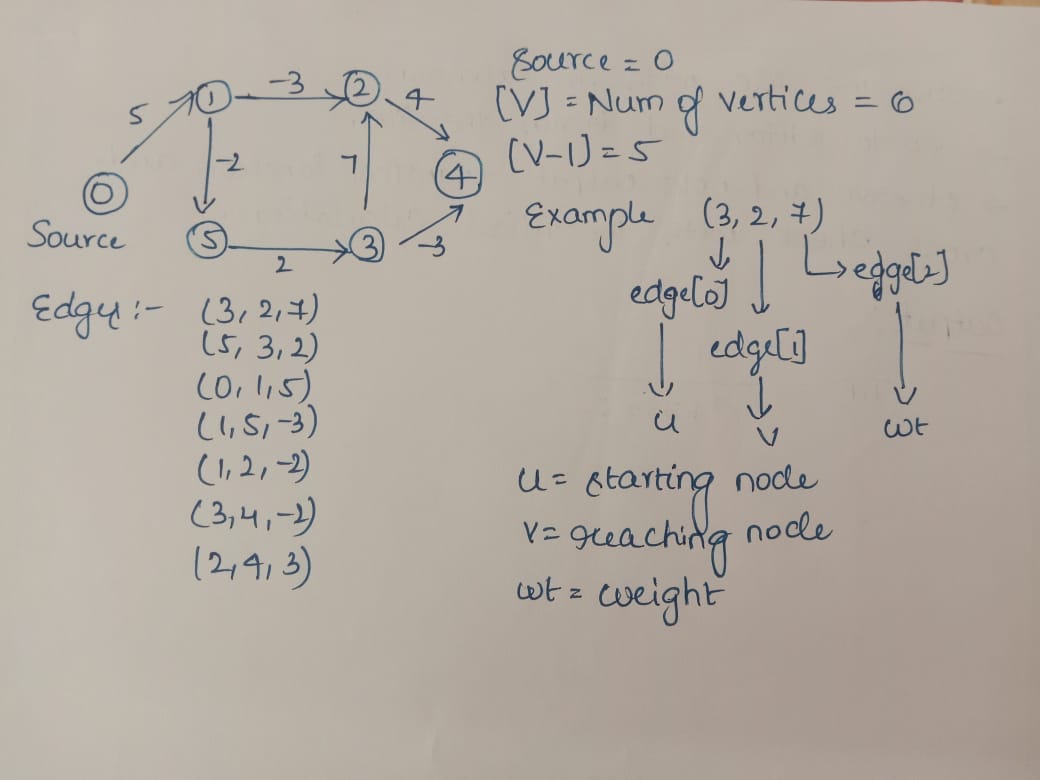 5
1
-3
2
4
-2
7
4
0
Source
5
2
3
-3
Source = 0
[V] = Num of vertices = 6
[V-1] = 5
Example (3, 2, 7)
edge[0]
edge[1]
edge[2]
u
v
wt
u = starting node
v = reaching node
wt = weight
Edges :- (3, 2, 7)
(5, 3, 2)
(0, 1, 5)
(1, 5, -3)
(1, 2, -2)
(3, 4, -2)
(2, 4, 3)